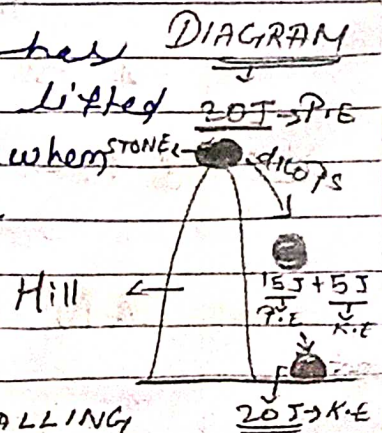 has DIAGRAM
lifted 20J → P.E
when STONE drops
Hill ←
15J + 5J
P.E K.E
ALLING 20J → K.E